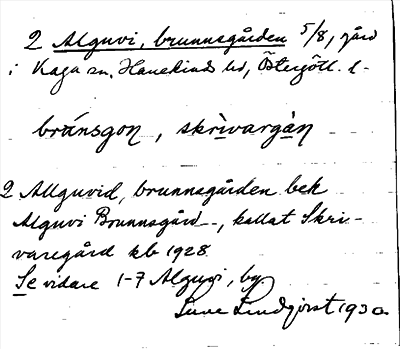 2 Alguvi, brunnsgården 5/8, gård
i Kaga sn, Hanekinds hd, Östergötl. l.
bránsgon, skrìvargàn
2 Allguvid, brunnsgården bek
Alguvi Brunnsgård--, kallat Skri-
varegård kb 1928
Se vidare 1-7 Alguvi, by
Sune Lindqvist 1930